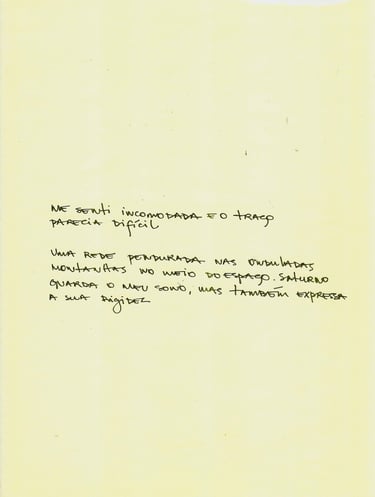 ME SENTI INCOMODADA E O TRAÇO
PARECIA DIFÍCIL
UMA REDE PENDURADA NAS ONDULADAS
MONTANHAS NO MEIO DO ESPAÇO. SATURNO
GUARDA O MEU SONO, MAS TAMBÉM EXPRESSA
A SUA RIGIDEZ